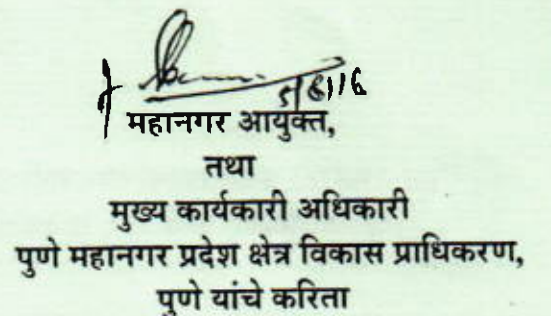 5/8/16
महानगर आयुक्त,
तथा
मुख्य कार्यकारी अधिकारी
पुणे महानगर प्रदेश क्षेत्र विकास प्राधिकरण,
पुणे यांचे करिता